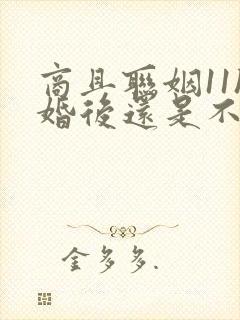 商且聯姻11
婚後還是不
金多多.